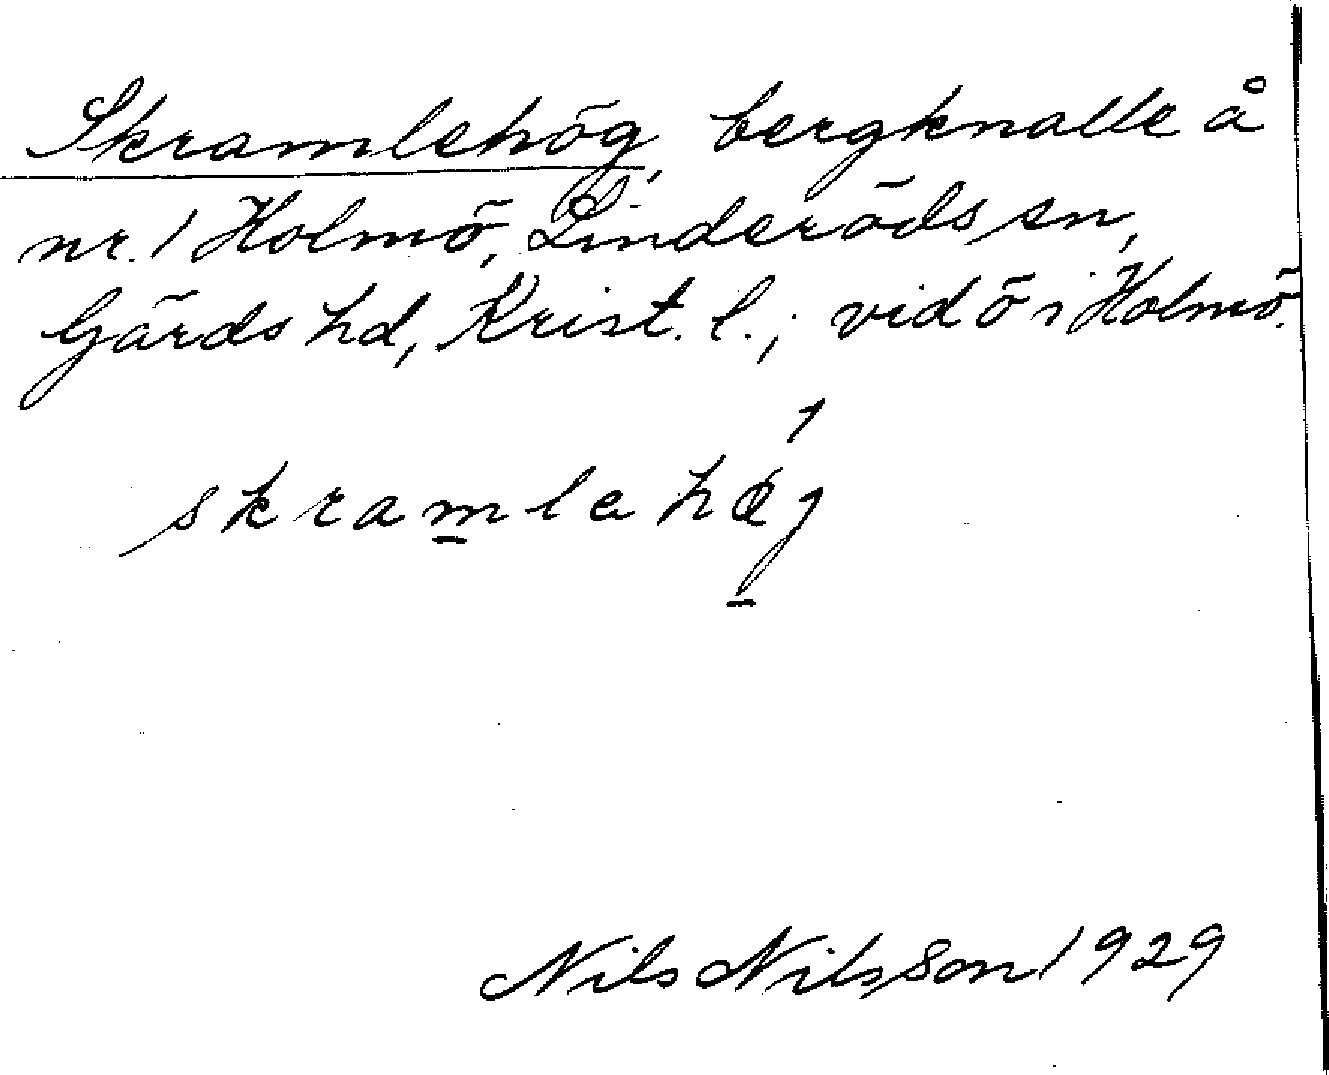 Skramlehög, bergknalle å
nr. 1 Holmö, Linderöds sn,
Gärds hd, Krist. l.; vid ö i Holmö.
skramlehøj
Nils Nilsson 1929